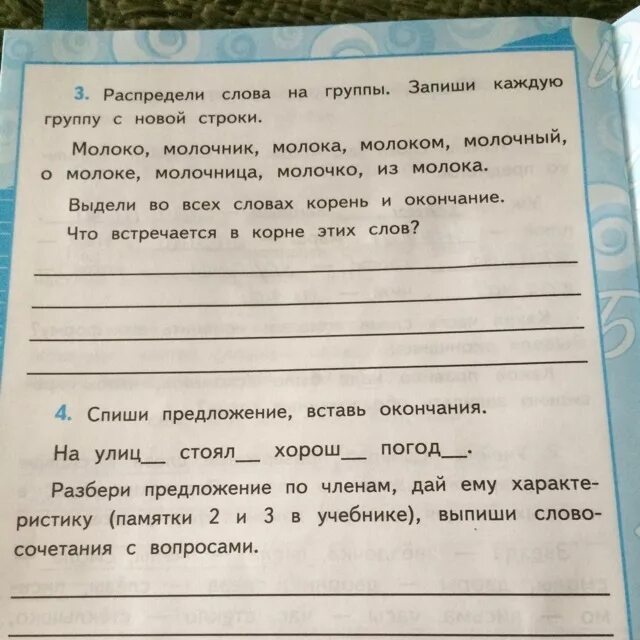 3. Распредели слова на группы. Запиши каждую
группу с новой строки.
Молоко, молочник, молока, молоком, молочный,
о молоке, молочница, молочко, из молока.
Выдели во всех словах корень и окончание.
Что встречается в корне этих слов?
4. Спиши предложение, вставь окончания.
На улиц__ стоял__ хорош__ погод__.
Разбери предложение по членам, дай ему характе-
ристику (памятки 2 и 3 в учебнике), выпиши слово-
сочетания с вопросами.